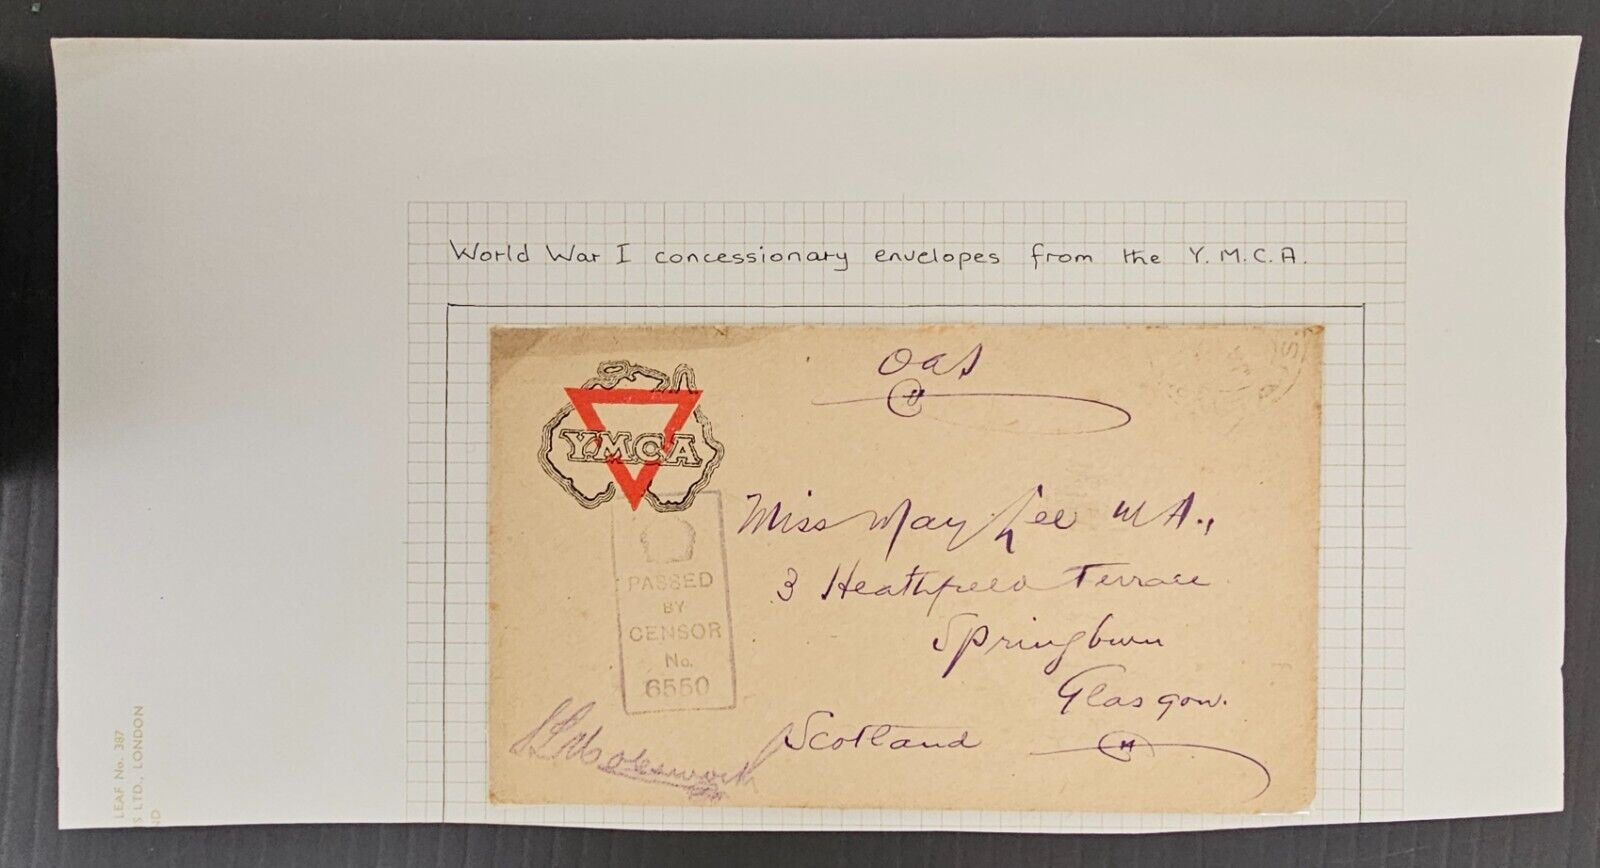 World War I concessionary envelopes from the Y.M.C.A.
OAS
YMCA
Miss May Lee M.A.,
3 Heathfield Terrace
Springburn
Glasgow.
Scotland
PASSED
BY
CENSOR
No.
6550
LEAF No. 387
LTD., LONDON